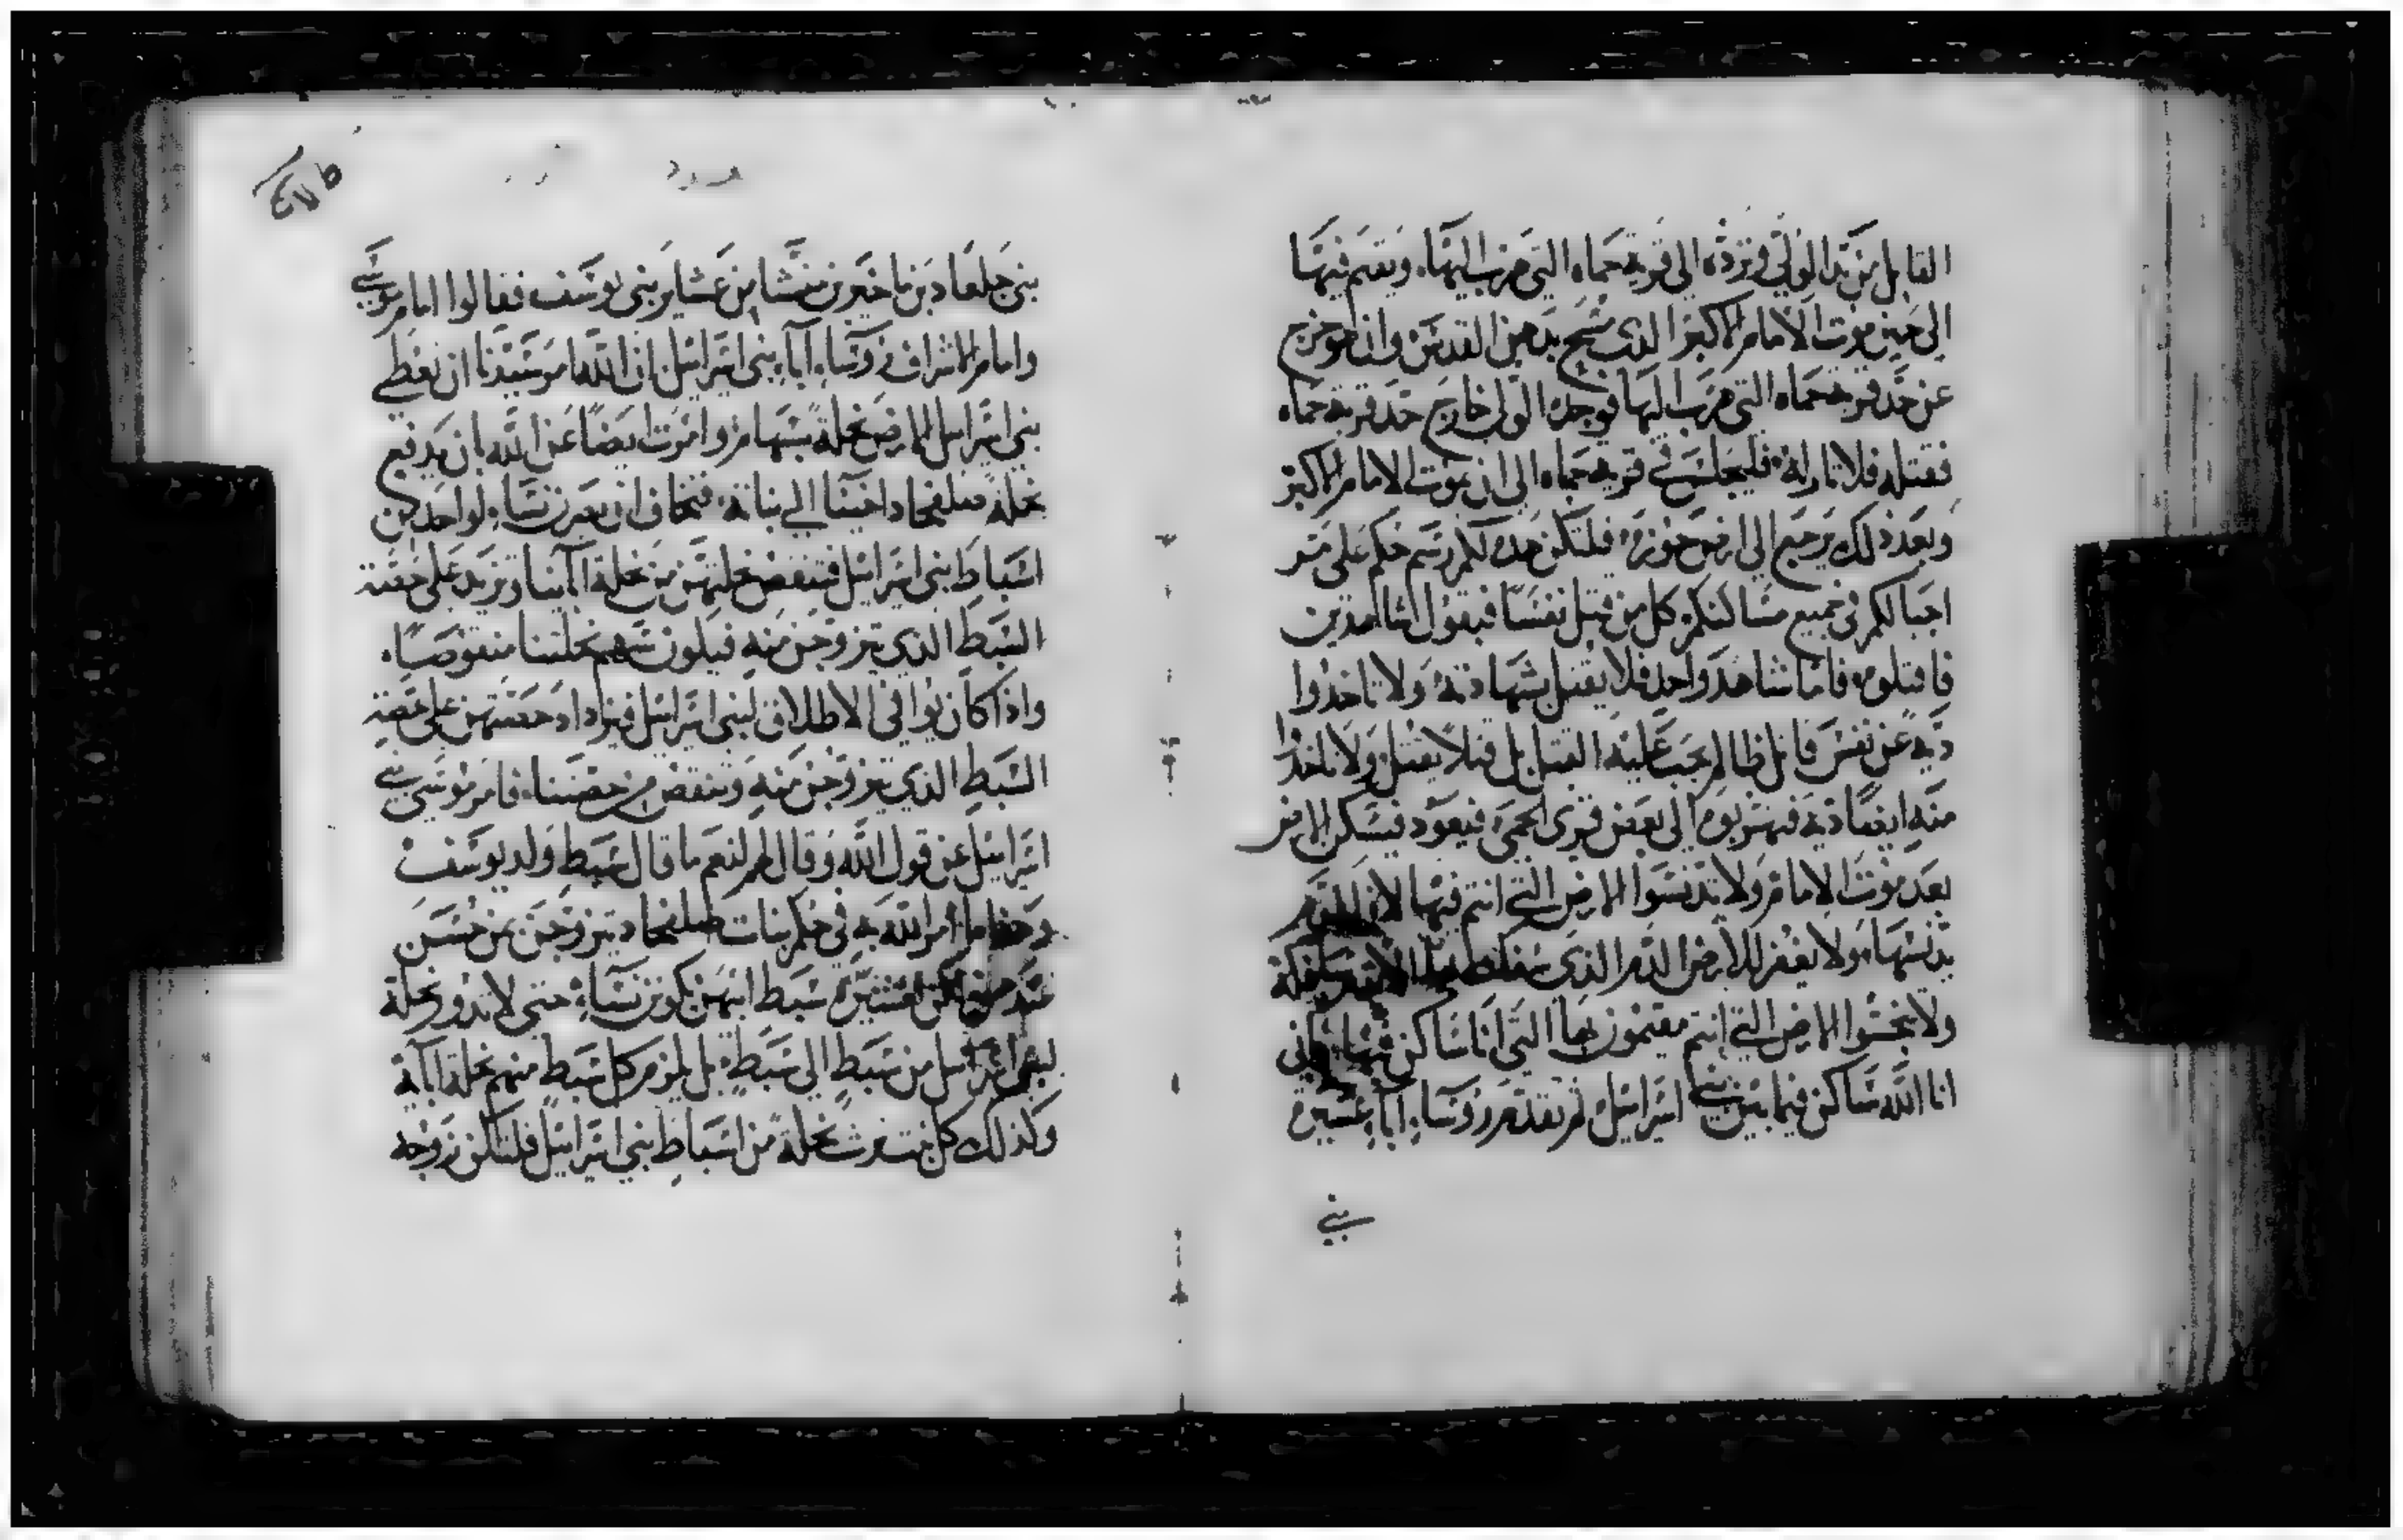 القاتل من يد الولي وترده الى قرية حماه التي هرب اليها. ويقيم فيها
الى حين موت الامام الاكبر الذي مسح بدهن القدس وان هو خرج
عن حد قرية حماه التي هرب اليها فوجده الولي خارج حد قرية حماه
فقتله فلا ثار له فليجلس في قرية حماه الى ان يموت الامام الاكبر
وبعد ذلك يرجع الى ارض حوزه فلتكن هذه لكم رسم حكم على مر
اجيالكم في جميع مساكنكم كل من قتل نفسا فبقول الشاهدين
فاقتلوه فاما شاهد واحد فلا يقبل شهادته ولا تاخذوا
دية عن نفس قاتل ظالم يجب عليه القتل بل قتلا يقتل ولا تاخذوا
منه ايضا دية فيهربوه الى بعض قرى الحمى فيعود فيسكن الارض
بعد موت الامام ولا تدنسوا الارض التي انتم فيها لان الدم
يدنسها ولا يغفر للارض الدم الذي سفك
ولا تنجسوا الارض التي انتم مقيمون بها التي انا ساكن فيها فاني
انا الله ساكن فيما بين بني اسرائيل ثم تقدم روساء ابا عشيرة
بني
بني جلعاد بن ماخير بن منشا من عشاير بني يوسف فقالوا امام موسى
وامام الاشراف روساء آباء بني اسرائيل ان الله امر سيدنا ان يعطي
بني اسرائيل الارض نحلة بسهام وامرت ايضا عن الله بان يدفع
نحلة صلفحاد اخينا الى بناته فنخاف ان يصرن نساء لواحد من
اسباط بني اسرائيل فتنقص نحلتهن من نحلة آباينا وتزيد على حصة
السبط الذي تزوجن منه فيكون سهم نحلتنا منقوصا.
واذا كان يوافي الاطلاق لبني اسرائيل فيزداد حصتهن على حصة
السبط الذي تزوجن منه وتنقص من حصتنا فامر موسى بني
اسرائيل عن قول الله وقال لهم لنعم ما قال سبط ولد يوسف
وهذا ما امر الله به في حكم بنات صلفحاد يتزوجن بمن حسن
عندهن لكن لعشيرة سبط ابيهن يكونن نساء حتى لا تدور نحلة
لبني اسرائيل من سبط الى سبط بل يلزم كل سبط منهم نحلة آبايه
وكذلك كل بنت ترث نحلة من اسباط بني اسرائيل فلتكن زوجة